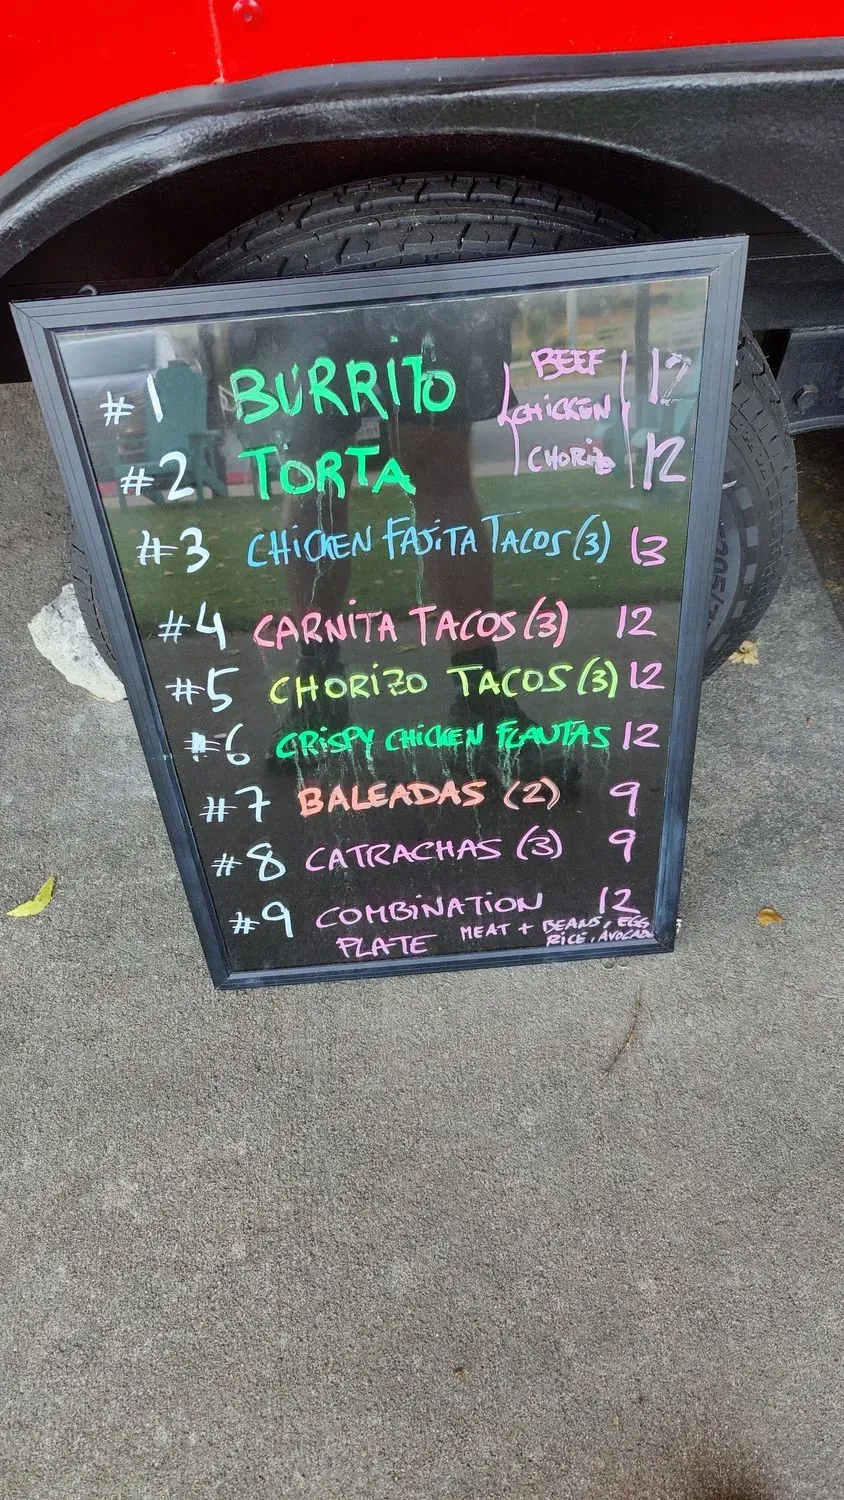 #1 BURRITO BEEF 12
CHICKEN
#2 TORTA CHORIZO 12
#3 CHICKEN FAJITA TACOS (3) 13
#4 CARNITA TACOS (3) 12
#5 CHORIZO TACOS (3) 12
#6 CRISPY CHICKEN FLAUTAS 12
#7 BALEADAS (2) 9
#8 CATRACHAS (3) 9
#9 COMBINATION 12
PLATE MEAT + BEANS, EGG
RICE, AVOCADO